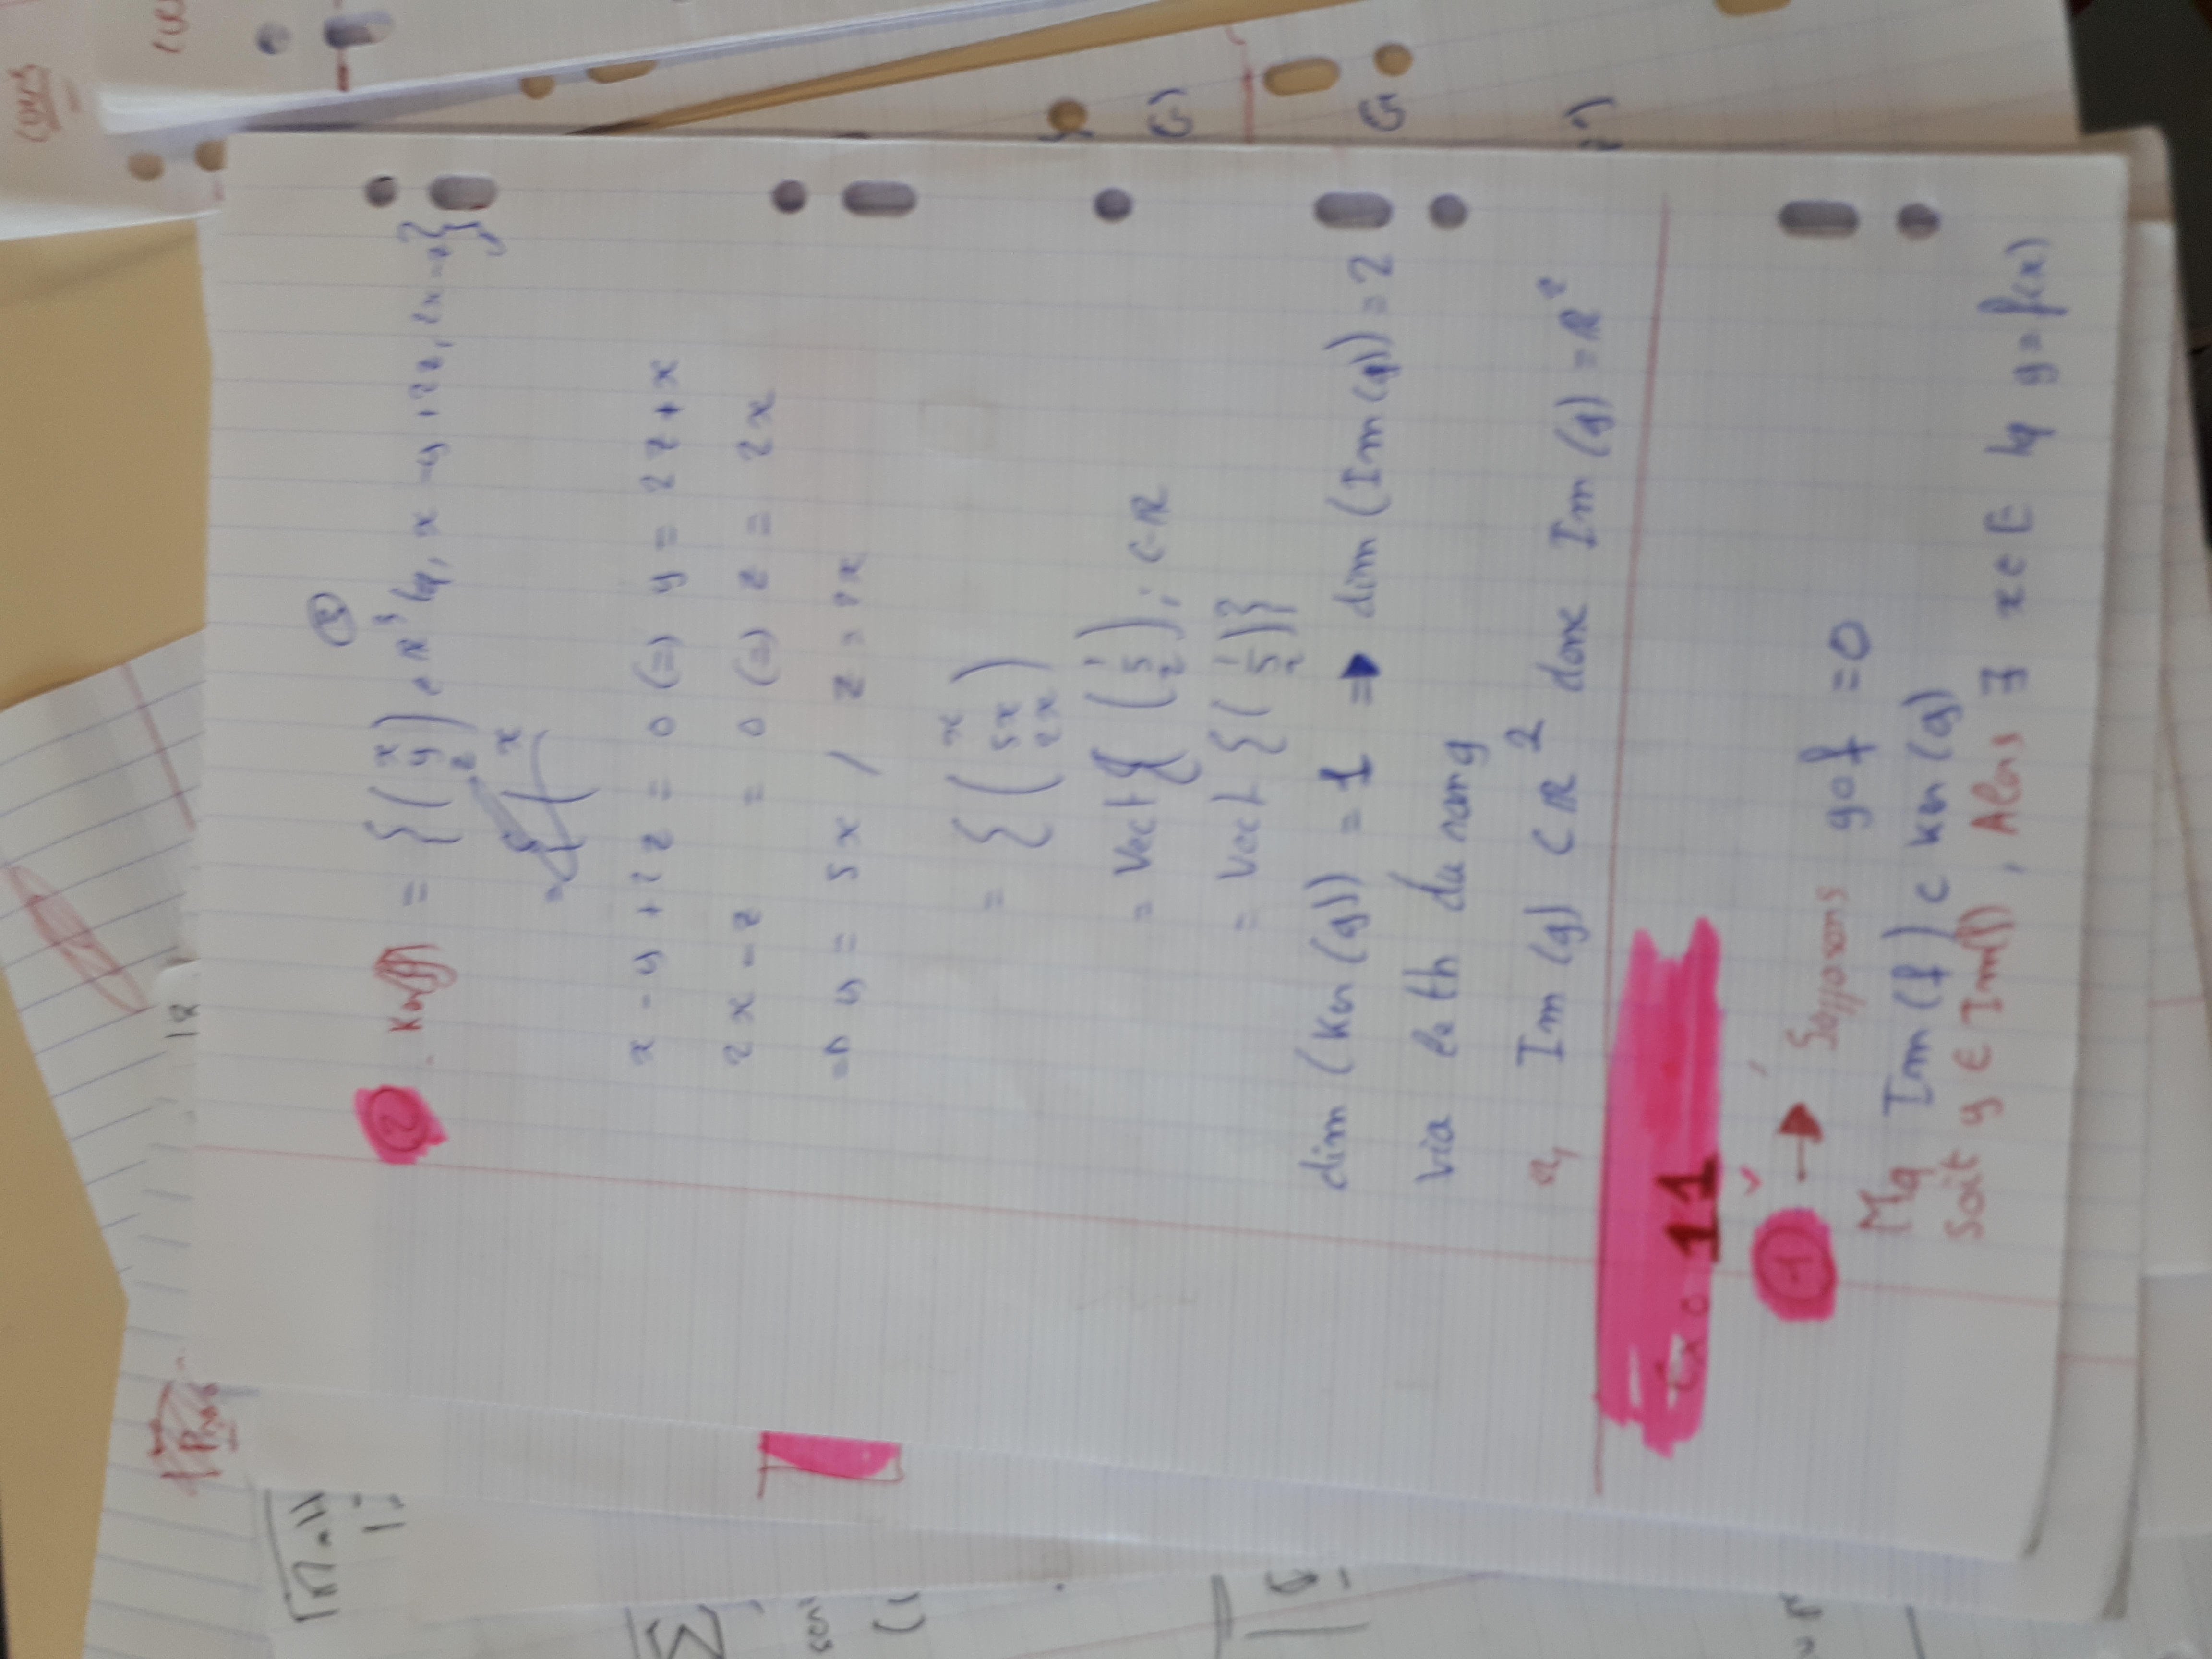 ③
② . Ker(g) = { ( x y z ) ∈ ℝ³ tq, x - y + 2z, 2x - z }
= { ( x
x - y + 2z = 0 (=) y = 2z + x
2x - z = 0 (=) z = 2x
=D y = 5x / z = 2x
= { ( x 5x 2x )
= Vect { ( 1 5 2 ) ; ∈ ℝ
= Vect { ( 1 5 2 ) }
dim (Ker (g)) = 1 => dim (Im (g)) = 2
via le th du rang
or, Im (g) ⊂ ℝ² donc Im (g) = ℝ²
Exo 11
① → Supposons gof = 0
Mq Im (f) ⊂ Ker (g)
Soit y ∈ Im(f), Alors ∃ x ∈ E tq y = f(x)
cours
Prop
18